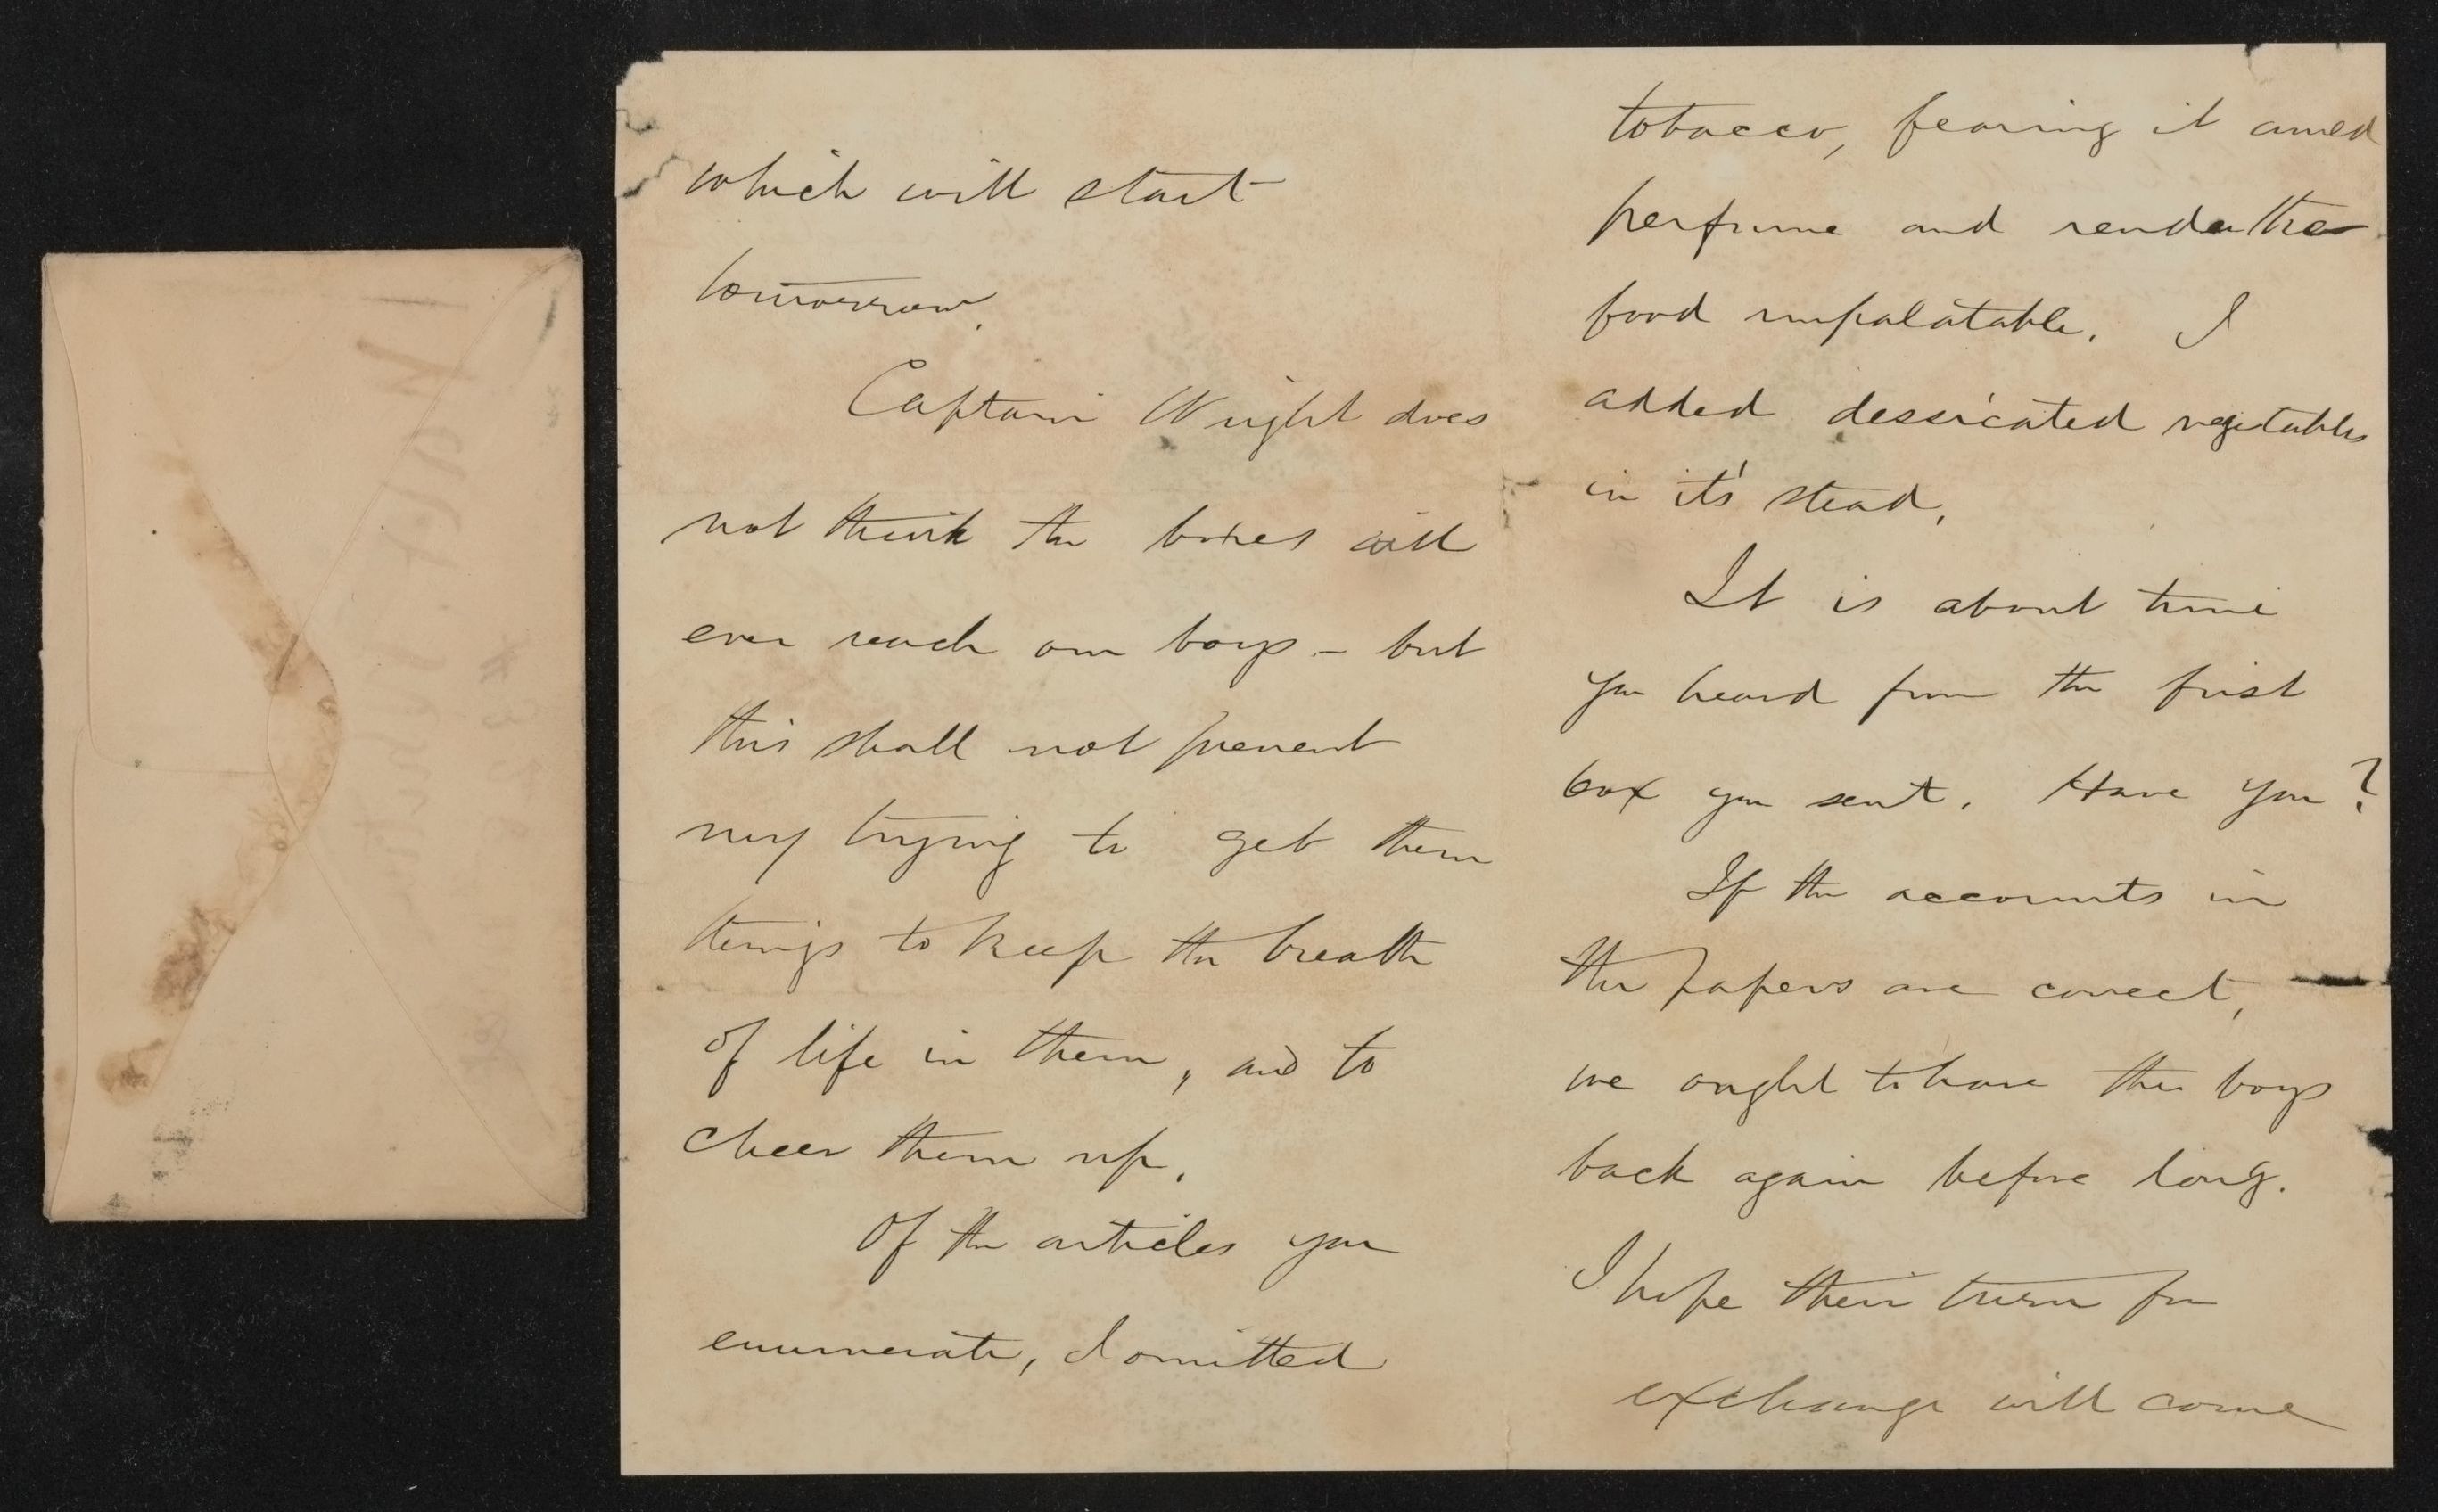 which will start
tomorrow.
Captain Wright does
not think the boxes will
ever reach our boys - but
this shall not prevent
my trying to get them
things to keep the breath
of life in them, and to
cheer them up.
Of the articles you
enumerate, I omitted
tobacco, fearing it
perfume and render the
food unpalatable. I
added dessicated vegetables
in it's stead.
It is about time
you heard from the first
box you sent. Have you?
If the accounts in
the papers are correct,
we ought to have the boys
back again before long.
I hope their turn for
exchange will come